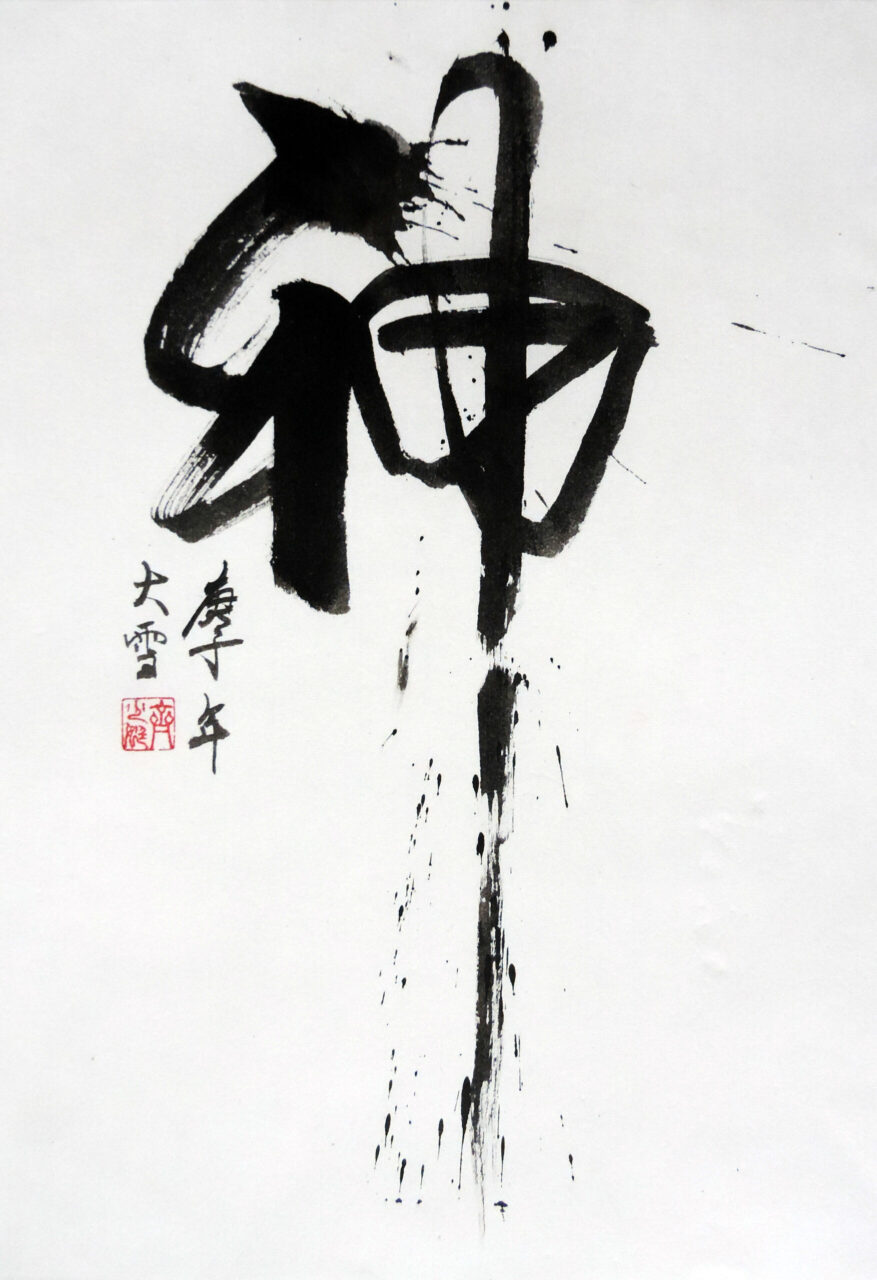 神
庚子年
大雪